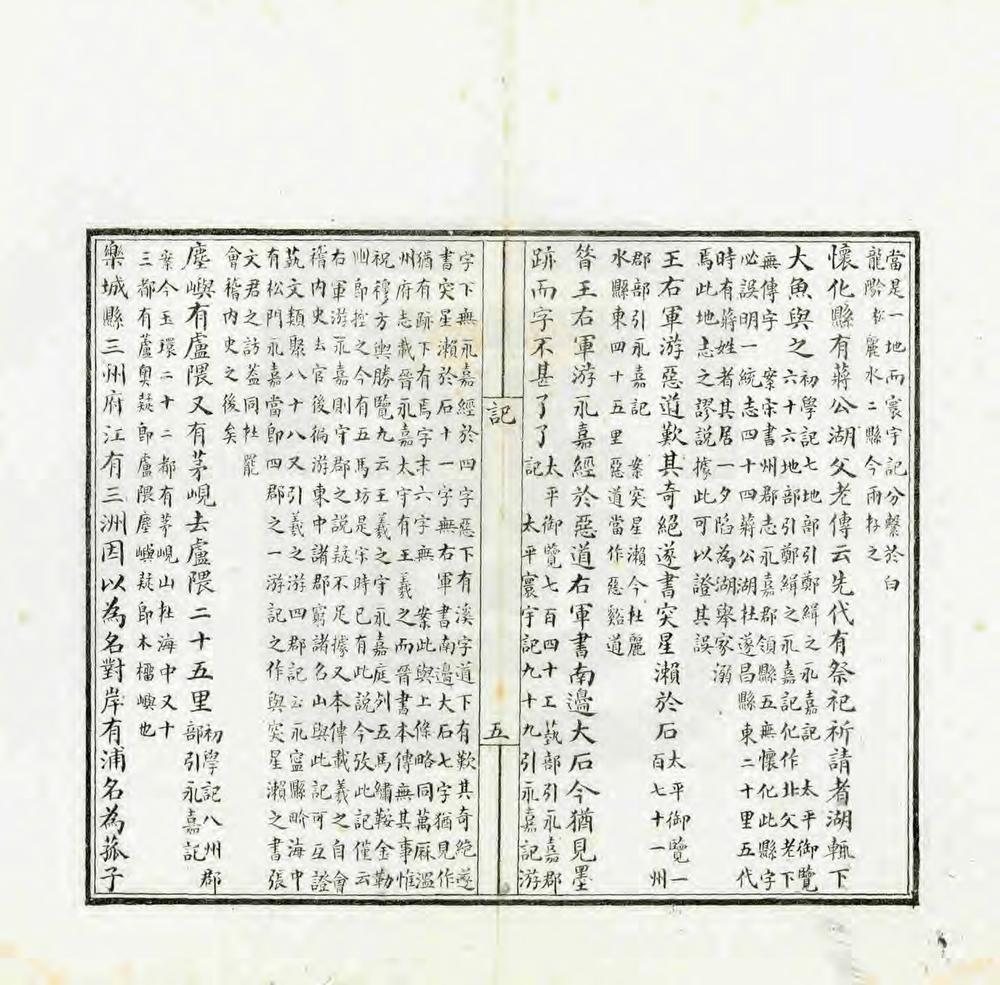 當是一地而寰宇記分繫於白
龍隂松麗水二縣今兩存之
懷化縣有蔣公湖父老傳云先代有祭祀祈請者湖輒下
大魚與之初學記七地部引鄭緝之永嘉記 太平御覽
六十六地部引鄭緝之永嘉記化作北父老下
無傳字 案宋書州郡志永嘉郡領縣五無懷化此縣字
必誤明一統志四十四蔣公湖杜遂昌縣東二十里五代
時有蔣姓者其居一夕陷為湖舉家溺
焉此地志之謬說據此可以證其誤
王右軍游惡道歎其奇絕遂書突星瀨於石太平御覽一
百七十一州
郡部引永嘉記 案突星瀨今杜麗
水縣東四十五里惡道當作惡谿道
昝王右軍游永嘉經於惡道右軍書南邊大石今猶見墨
跡而字不甚了了太平御覽七百四十工藝部引永嘉郡
記 太平寰宇記九十九引永嘉記游
記
五
字下無永嘉經於四字惡下有溪字道下有歎其奇絕遂
書突星瀨於石十一字無右軍書南邊大石七字猶見作
猶有跡下有焉字末六字無 案此與上條略同萬厤溫
州府志載晉永嘉太守有王羲之而晉書本傳無其事惟
祝穆方輿勝覽九云王羲之守永嘉庭列五馬繡鞍金勒
出即控之今有五馬坊是宋時已有此說今攷此記僅云
右軍游永嘉則守郡之說疑不足據又本傳載羲之自會
稽內史去官後徧游東中諸郡窮諸名山與此記可互證
蓺文類聚八十八又引羲之游四郡記云永寧縣畍海中
有松門永嘉當即四郡之一游記之作與突星瀨之書張
文君之訪蓋同杜罷
會稽內史之後矣
塵嶼有盧隈又有茅峴去盧隈二十五里初學記八州郡
部引永嘉記
案今玉環二十二都有茅峴山杜海中又十
三都有蘆奧疑即盧隈塵嶼疑即木橊嶼也
樂城縣三州府江有三洲因以為名對岸有浦名為菰子